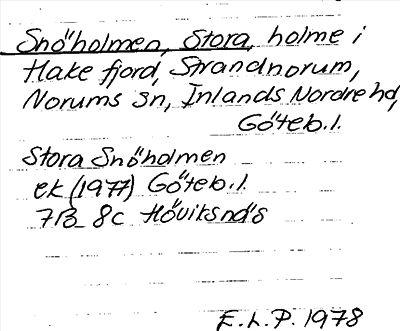 Snöholmen, Stora, holme i
Hake fjord, Strandnorum,
Norums sn, Inlands Nordre hd,
Göteb.l.
Stora Snöholmen
ek (1977) Göteb.l.
7B 8c Höviksnäs
E.L.P. 1978